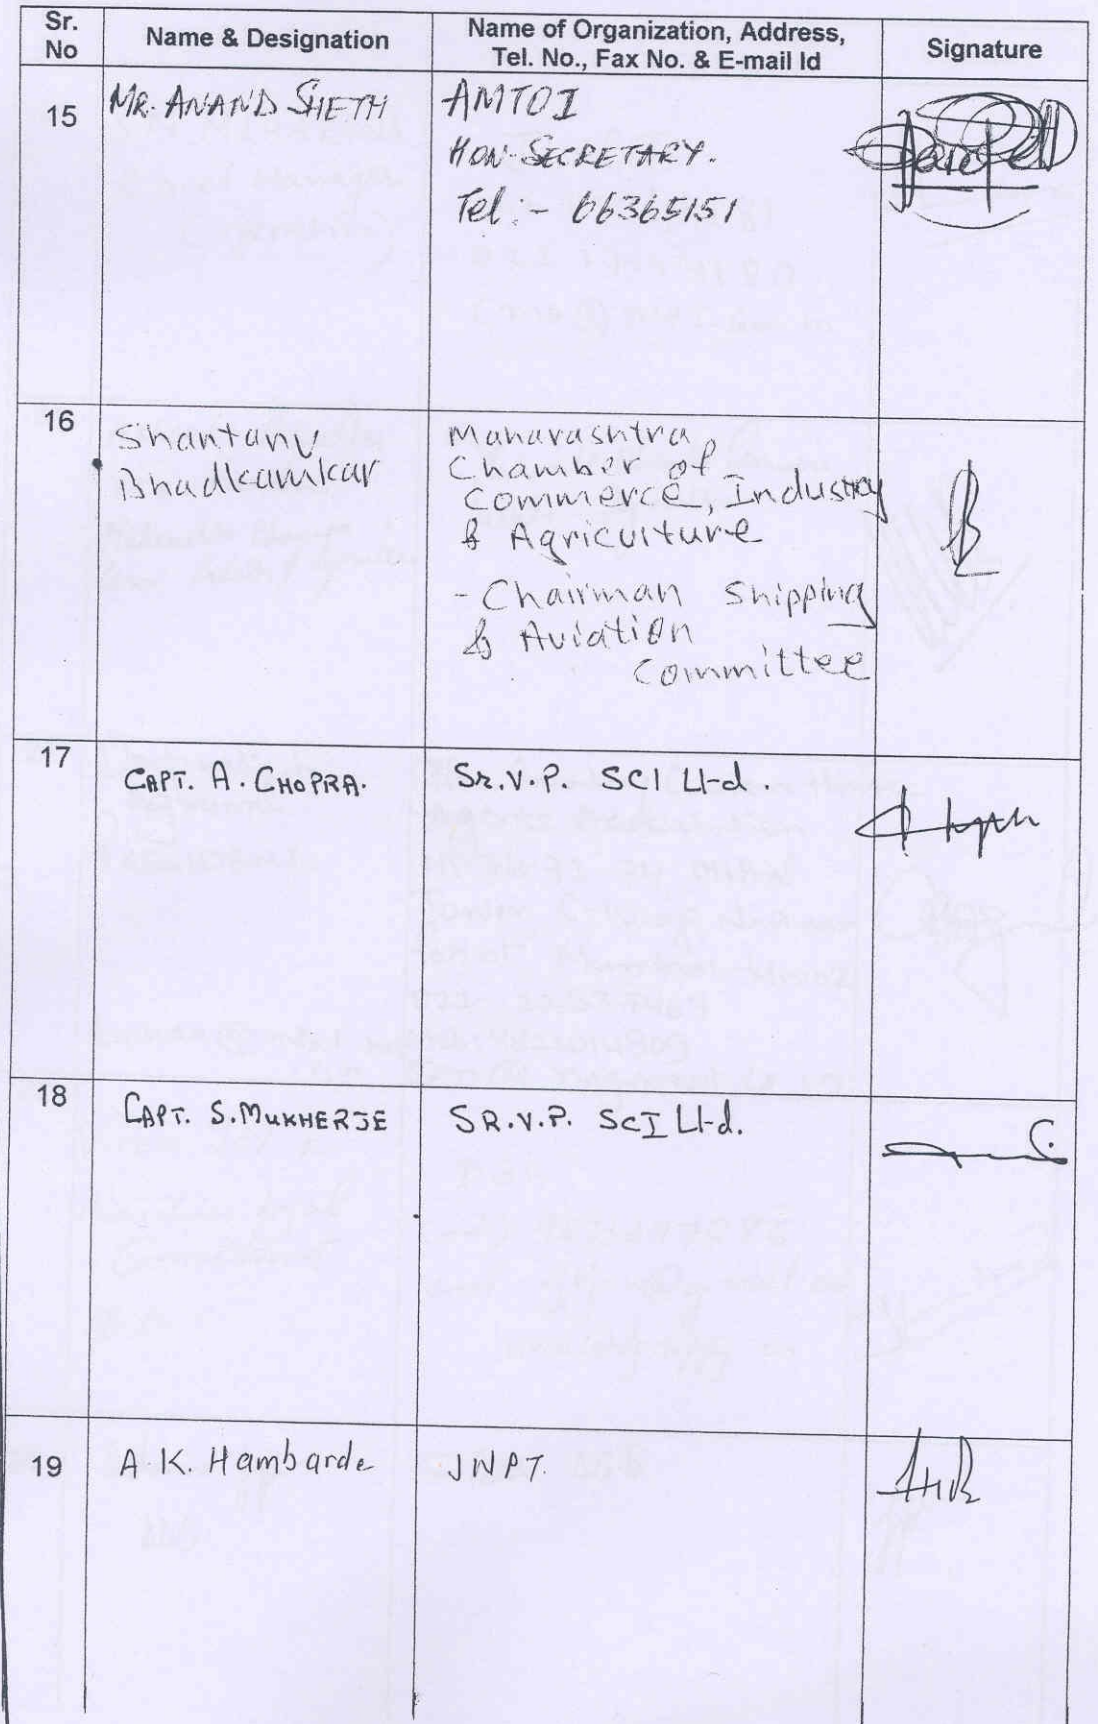 Sr. No
Name & Designation
Name of Organization, Address,
Tel. No., Fax No. & E-mail Id
Signature
15
MR. ANAND SHETH
AMTOI
HON. SECRETARY.
Tel :- 66365151
16
Shantanu
Bhadkamkar
Maharashtra
Chamber of
Commerce, Industry
& Agriculture
- Chairman Shipping
& Aviation
Committee
17
CAPT. A. CHOPRA.
Sr. V.P. SCI Ltd.
18
CAPT. S. MUKHERJE
SR. V.P. SCI Ltd.
19
A. K. Hambarde
JNPT.